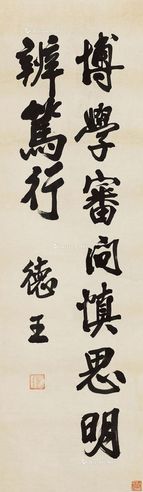 博學審问慎思明
辨篤行
德王